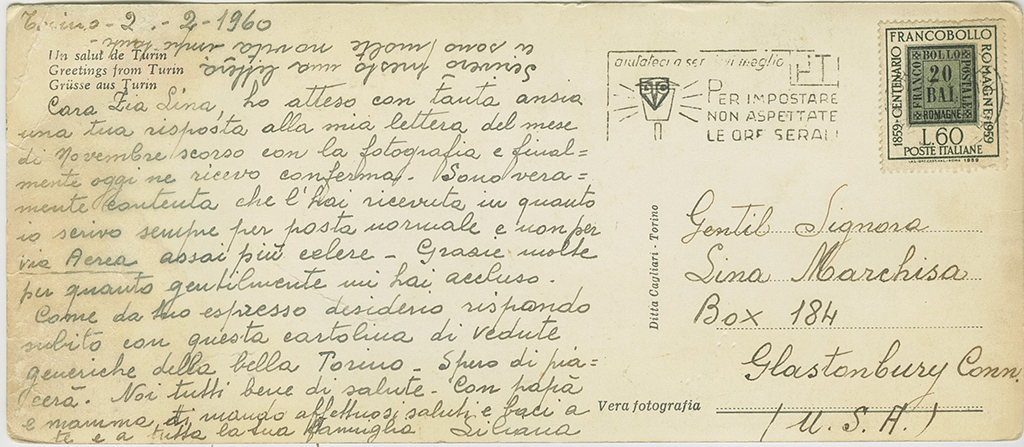 Torino - 2 - 2 - 1960
Un salut de Turin
Greetings from Turin
Grüsse aus Turin
Cara Zia Lina, ho atteso con tanta ansia
una tua risposta alla mia lettera del mese
di Novembre scorso con la fotografia e final=
mente oggi ne ricevo conferma. Sono vera=
mente contenta che l'hai ricevuta in quanto
io scrivo sempre per posta normale e non per
via Aerea assai più celere - Grazie molte
per quanto gentilmente mi hai accluso.
Come da tuo espresso desiderio rispondo
subito con questa cartolina di vedute
generiche della bella Torino - Spero di pia=
cerà. Noi tutti bene di salute - Con papà
e mamma, ti mando affettuosi saluti e baci a
te e a tutta la tua famiglia Liliana
questo una lettera
vi sono molte novità
aiutateci a servirvi meglio
PER IMPOSTARE
NON ASPETTATE
LE ORE SERALI
FRANCOBOLLO
1859-CENTENARIO ROMAGNE-1959
FRANCO BOLLO POSTALE ROMAGNE
20
BAI
L.60
POSTE ITALIANE
Ditta Cagliari - Torino
Gentil Signora
Lina Marchisa
Box 184
Glastonbury Conn.
(U.S.A.)
Vera fotografia